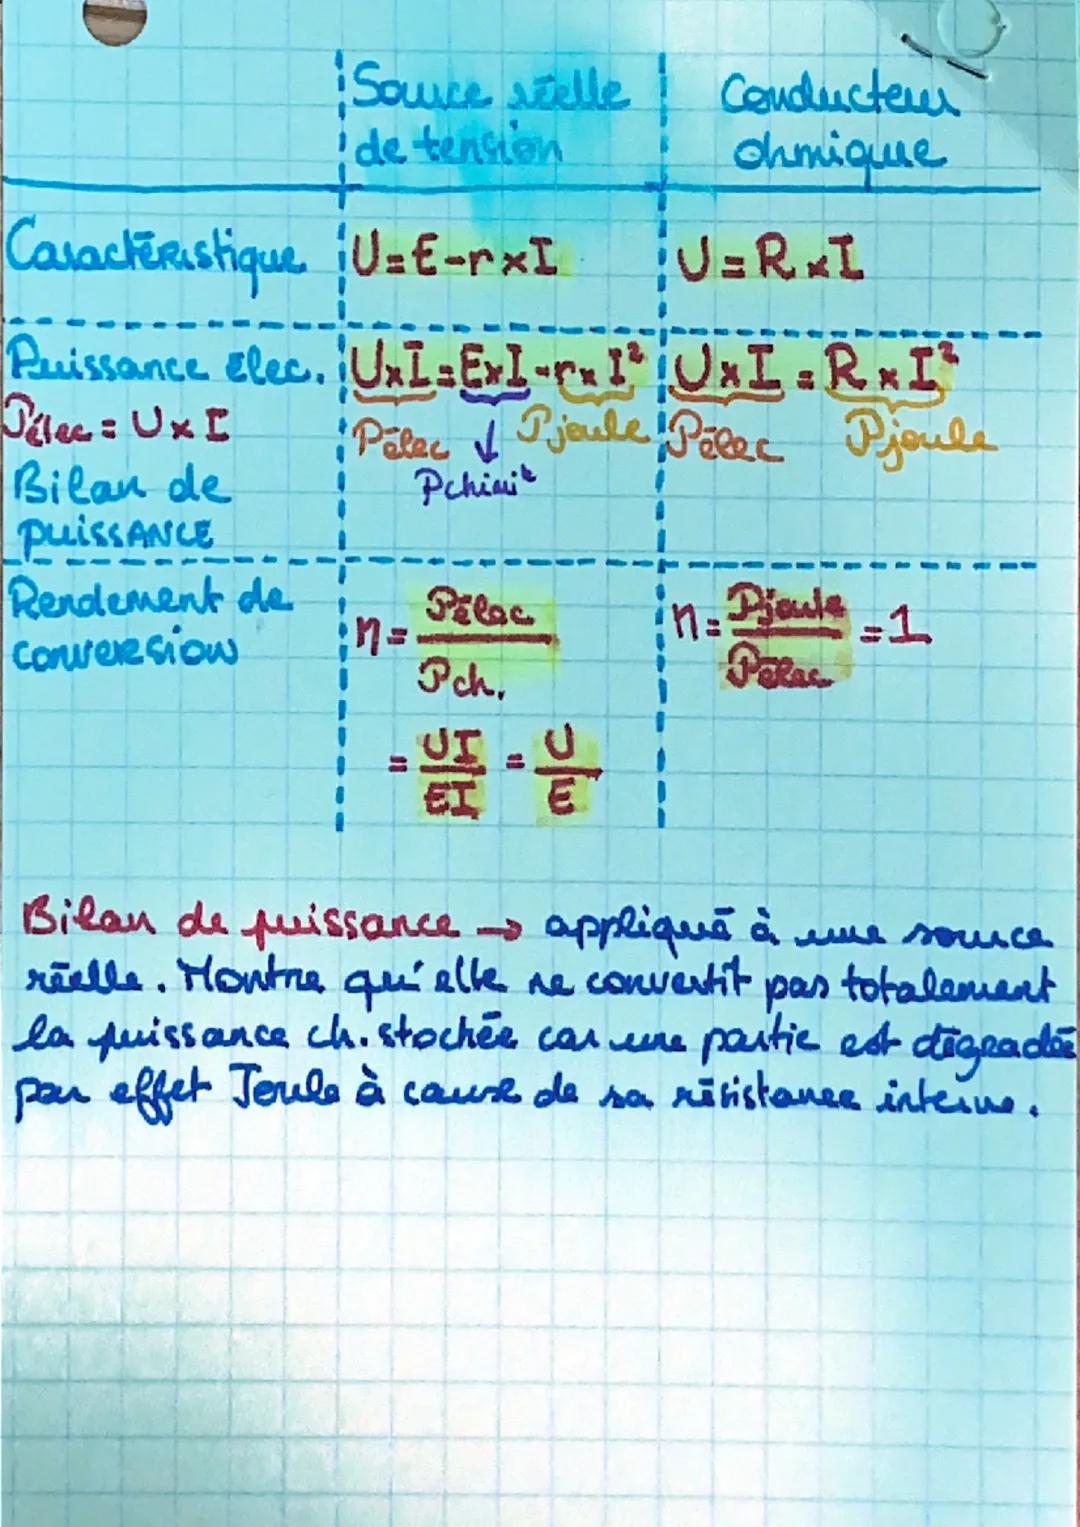 Source réelle
de tension
Conducteur
ohmique
Caractéristique
U=E-r×I
U=R×I
Puissance élec.
Pélec = U×I
Bilan de
PUISSANCE
U×I=E×I-r×I²
Pélec ↓ Pjoule
Pchimi
U×I = R×I²
Pélec Pjoule
Rendement de
conversion
η = Pélec / Pch.
= UI / EI = U / E
η = Pjoule / Pélec = 1
Bilan de puissance → appliqué à une source
réelle. Montre qu'elle ne convertit pas totalement
la puissance ch. stockée car une partie est dégradée
par effet Joule à cause de sa résistance interne.